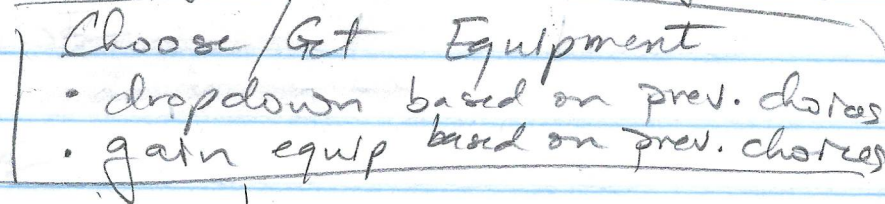 Choose/Get Equipment
• dropdown based on prev. choices
• gain equip based on prev. choices